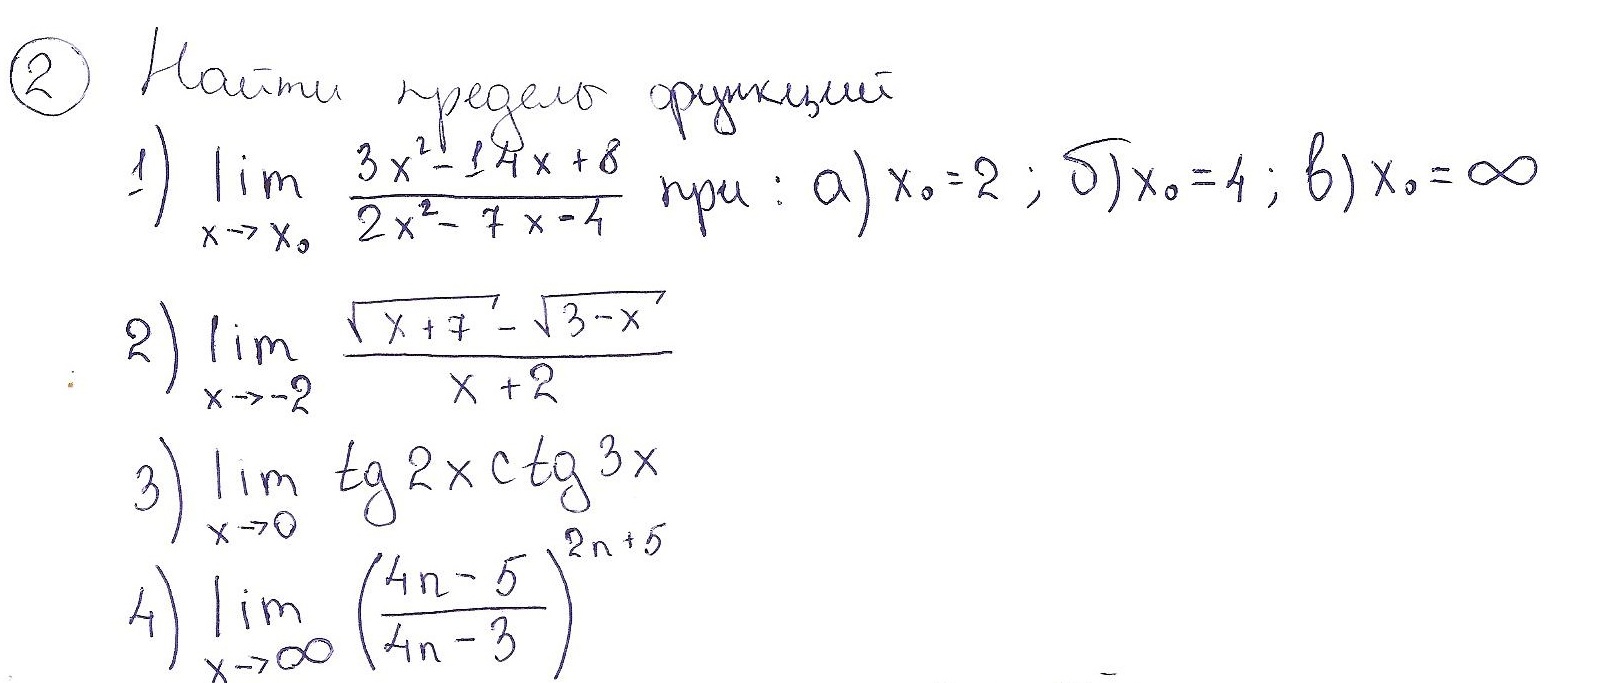 2 Найти пределы функций
1) lim x→x₀ (3x² - 14x + 8)/(2x² - 7x - 4) при: а) x₀ = 2; б) x₀ = 4; в) x₀ = ∞
2) lim x→-2 (√(x+7) - √(3-x))/(x+2)
3) lim x→0 tg 2x ctg 3x
4) lim x→∞ ((4n - 5)/(4n - 3))^(2n+5)